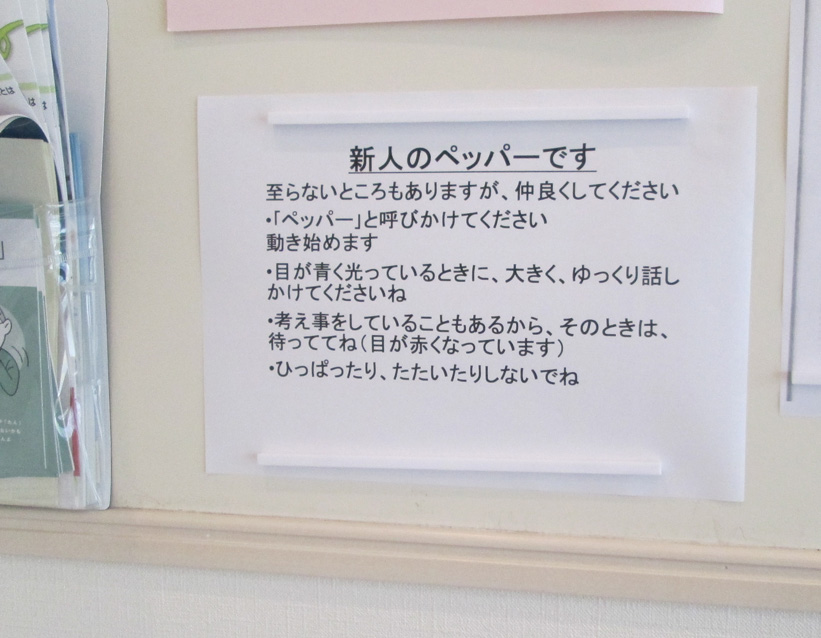 新人のペッパーです
至らないところもありますが、仲良くしてください
・「ペッパー」と呼びかけてください
動き始めます
・目が青く光っているときに、大きく、ゆっくり話し
かけてくださいね
・考え事をしていることもあるから、そのときは、
待っててね（目が赤くなっています）
・ひっぱったり、たたいたりしないでね
とは
は